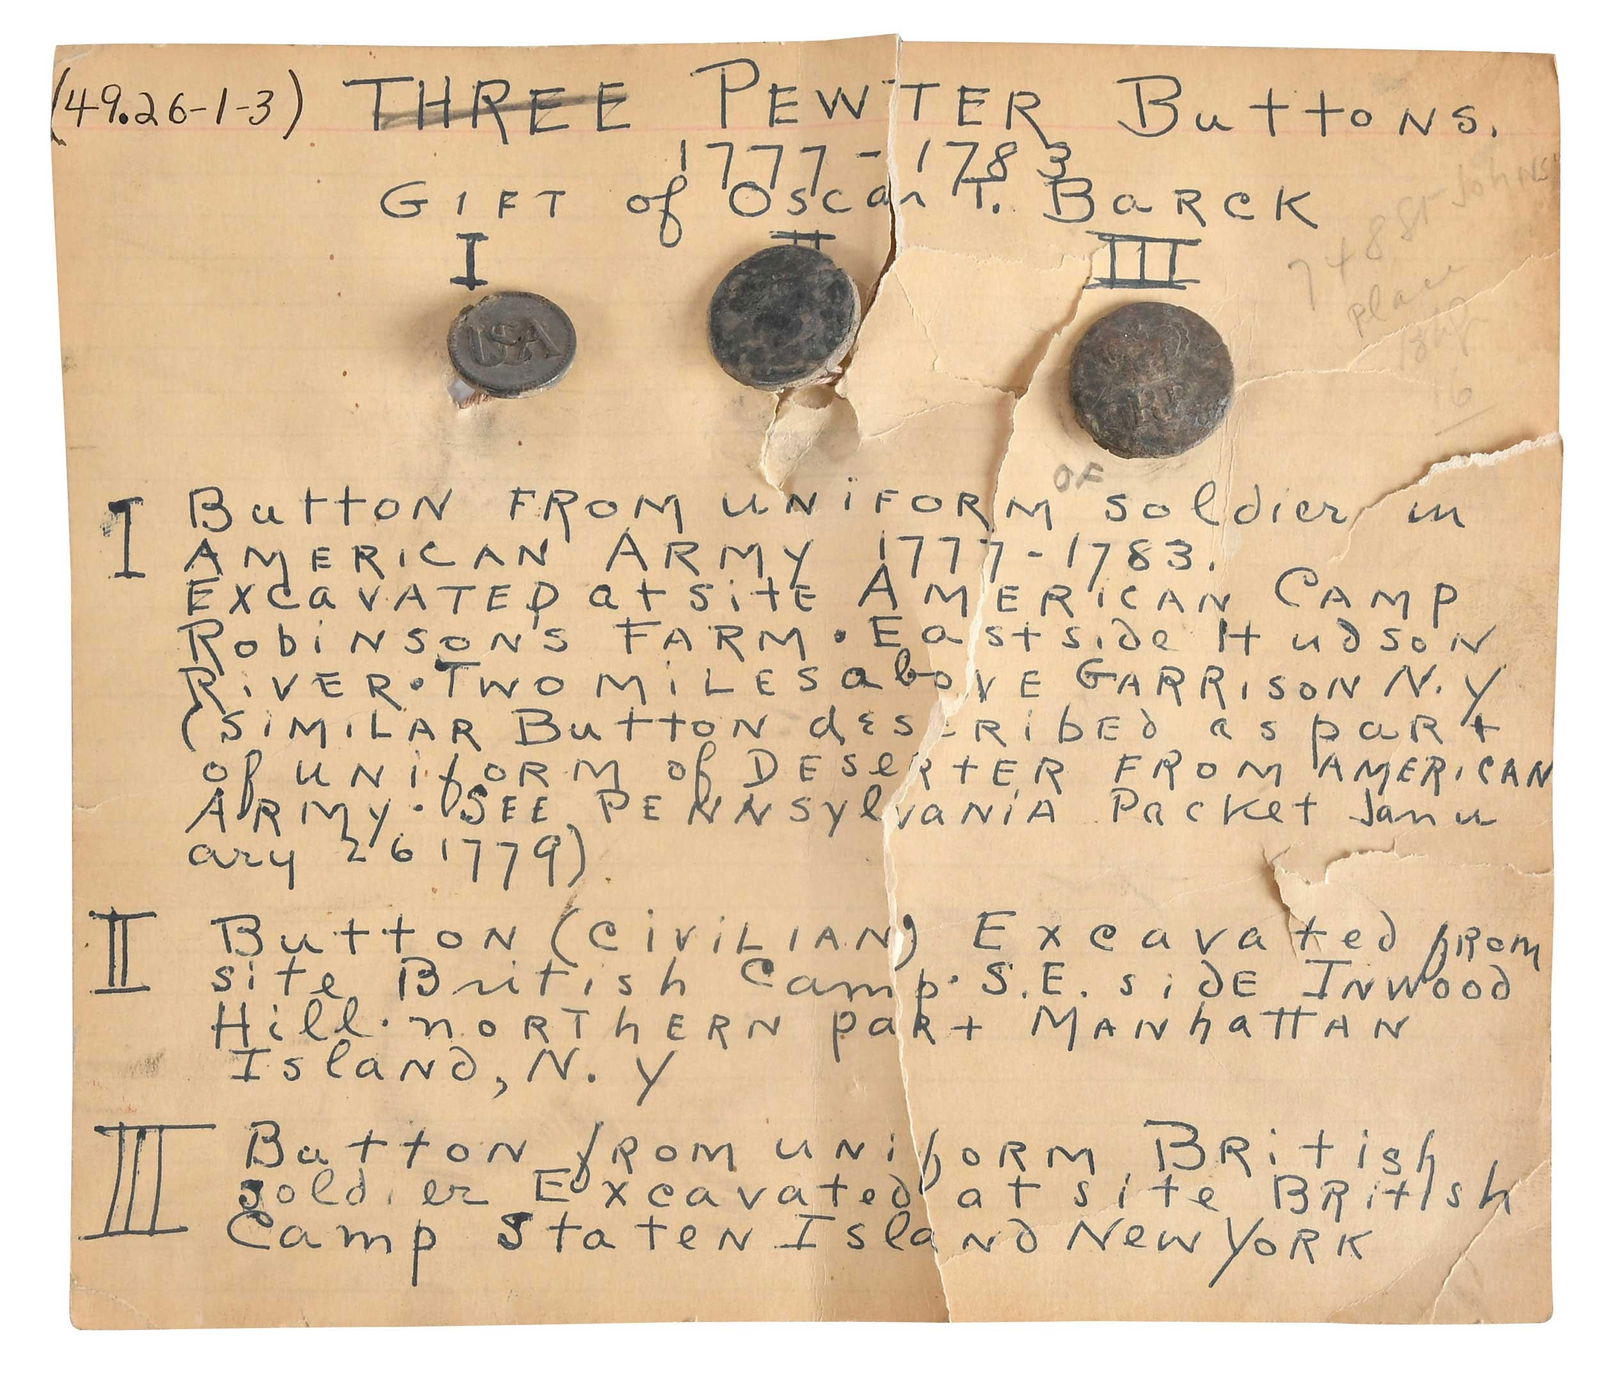 (49.26-1-3) THREE PEWTER Buttons.
1777-1783
GIFT of Oscar T. BARCK
I II III
USA
748 St Johns
Place
Bkly
16
OF
I Button FROM UNIFORM soldier in
AMERICAN ARMY 1777-1783.
EXCAVATED at site AMERICAN CAMP
ROBINSONS FARM. East side Hudson
RIVER. TWO MILES above GARRISON N.Y
(SIMILAR Button described as part
of UNIFORM of DESERTER FROM AMERICAN
ARMY. SEE PENNSylvANIA Packet Janu
ary 26 1779)
II Button (CIVILIAN) Excavated from
site British Camp. S.E. side INWOOD
Hill. NORTHERN part MANhattAN
Island, N.Y
III Button from uniform British
soldier Excavated at site BRitish
Camp Staten Island New YORK